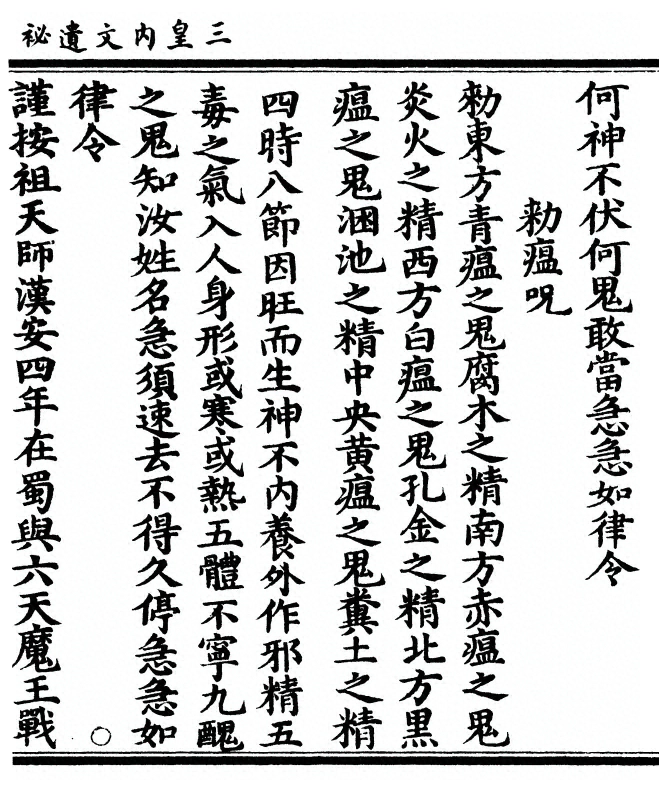 三皇內文遺祕
何神不伏何鬼敢當急急如律令
勑瘟呪
勑東方青瘟之鬼腐木之精南方赤瘟之鬼
炎火之精西方白瘟之鬼孔金之精北方黒
瘟之鬼溷池之精中央黄瘟之鬼糞土之精
四時八節因旺而生神不内養外作邪精五
毒之氣入人身形或寒或熱五體不寧九醜
之鬼知汝姓名急須速去不得久停急急如
律令
謹按祖天師漢安四年在蜀與六天魔王戰